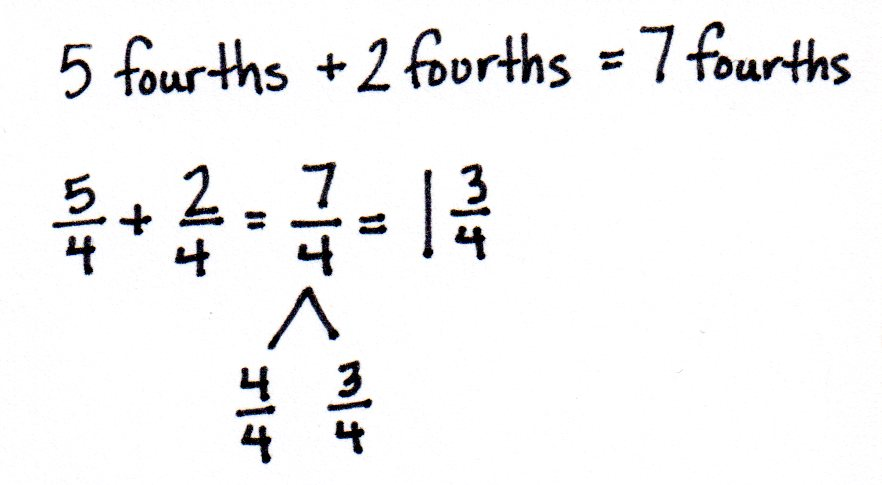 5 fourths + 2 fourths = 7 fourths
5/4 + 2/4 = 7/4 = 1 3/4
4/4 3/4